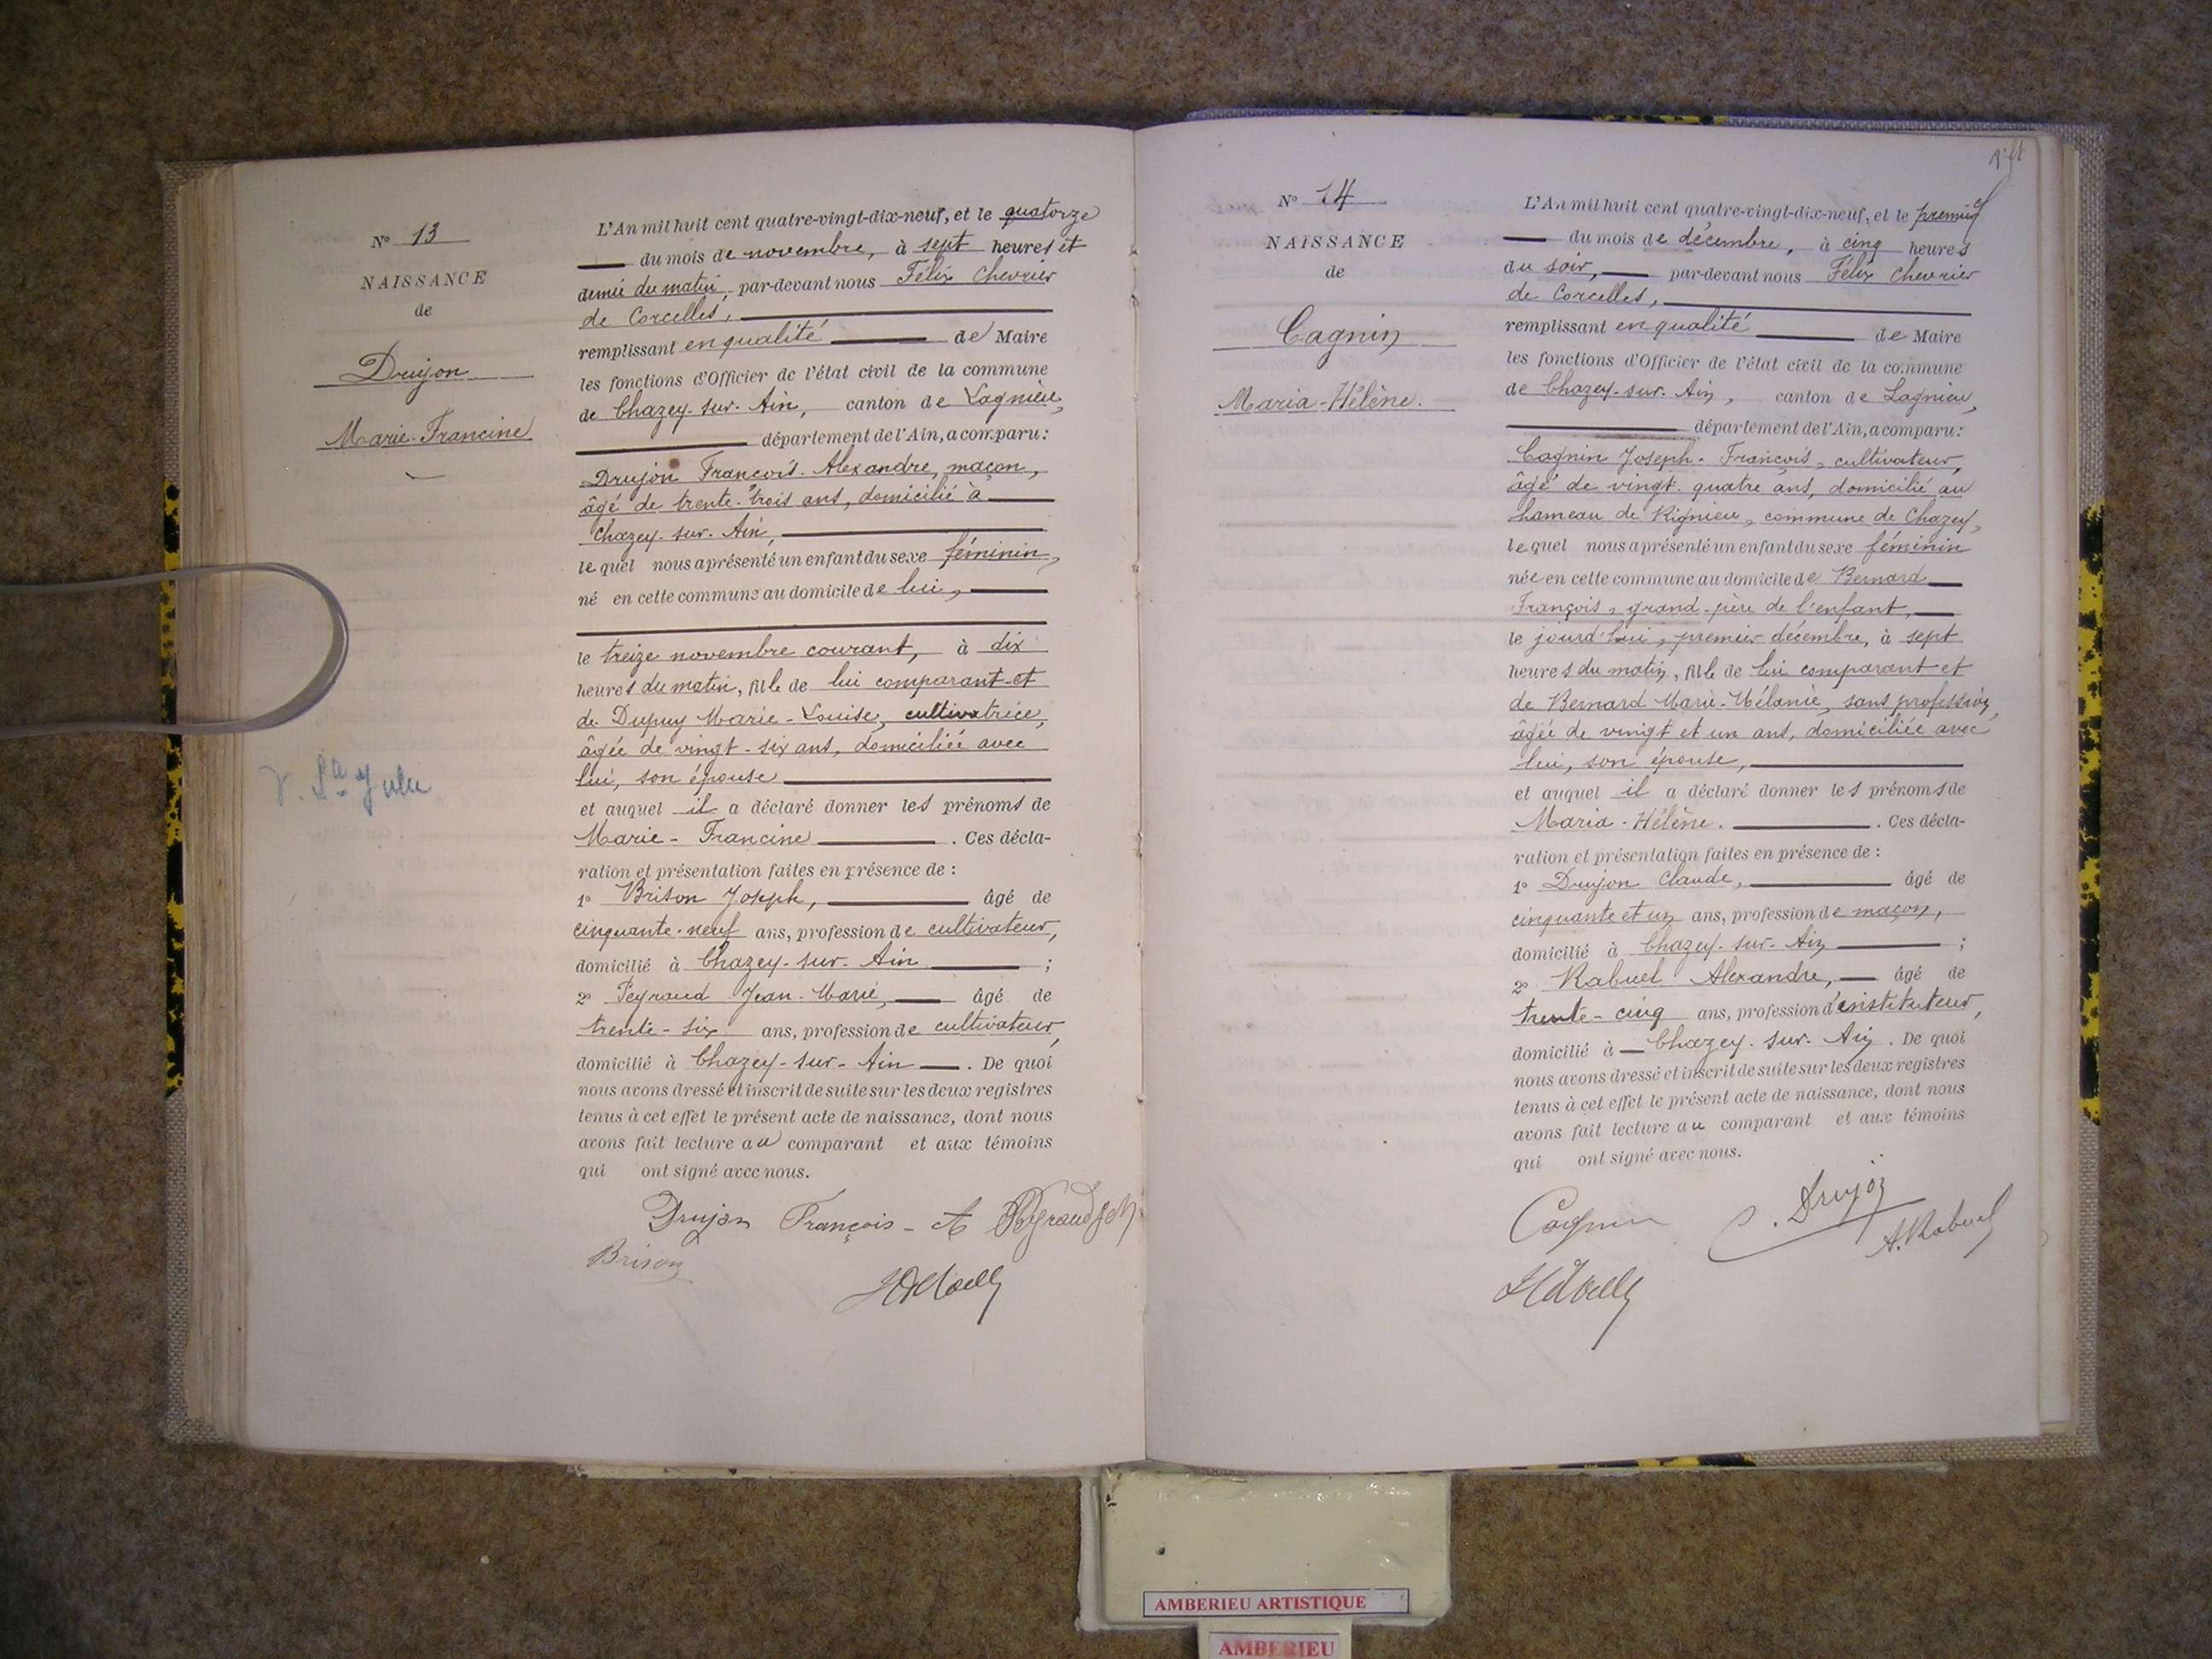 N° 13
NAISSANCE
de
Drujon
Marie-Francine
L'An mil huit cent quatre-vingt-dix-neuf, et le quatorze
du mois de novembre, à sept heures et
demie du matin, par-devant nous Félix Chevrier
de Corcelles,
remplissant en qualité de Maire
les fonctions d'Officier de l'état civil de la commune
de Chazey-sur-Ain, canton de Lagnieu,
département de l'Ain, a comparu:
Drujon François-Alexandre, maçon,
âgé de trente-trois ans, domicilié à
Chazey-sur-Ain,
lequel nous a présenté un enfant du sexe féminin,
né en cette commune au domicile de lui,
le treize novembre courant, à dix
heures du matin, fille de lui comparant et
de Dupuy Marie-Louise, cultivatrice,
âgée de vingt-six ans, domiciliée avec
lui, son épouse
et auquel il a déclaré donner les prénoms de
Marie-Francine. Ces décla-
ration et présentation faites en présence de:
1° Brison Joseph, âgé de
cinquante-neuf ans, profession de cultivateur,
domicilié à Chazey-sur-Ain;
2° Peyraud Jean-Marie, âgé de
trente-six ans, profession de cultivateur,
domicilié à Chazey-sur-Ain. De quoi
nous avons dressé et inscrit de suite sur les deux registres
tenus à cet effet le présent acte de naissance, dont nous
avons fait lecture au comparant et aux témoins
qui ont signé avec nous.
Drujon François-A Peyraud J M
Brison
N° 14
NAISSANCE
de
Cagnin
Maria-Hélène.
L'An mil huit cent quatre-vingt-dix-neuf, et le premier
du mois de décembre, à cinq heures
du soir, par-devant nous Félix Chevrier
de Corcelles,
remplissant en qualité de Maire
les fonctions d'Officier de l'état civil de la commune
de Chazey-sur-Ain, canton de Lagnieu,
département de l'Ain, a comparu:
Cagnin Joseph-François, cultivateur,
âgé de vingt-quatre ans, domicilié au
hameau de Rignieu, commune de Chazey,
lequel nous a présenté un enfant du sexe féminin
née en cette commune au domicile de Bernard
François, grand-père de l'enfant,
le jourd'hui, premier décembre, à sept
heures du matin, fille de lui comparant et
de Bernard Marie-Mélanie, sans profession,
âgée de vingt et un ans, domiciliée avec
lui, son épouse,
et auquel il a déclaré donner les prénoms de
Maria-Hélène. Ces décla-
ration et présentation faites en présence de:
1° Drujon Claude, âgé de
cinquante et un ans, profession de maçon,
domicilié à Chazey-sur-Ain;
2° Rabuel Alexandre, âgé de
trente-cinq ans, profession d'instituteur,
domicilié à Chazey-sur-Ain. De quoi
nous avons dressé et inscrit de suite sur les deux registres
tenus à cet effet le présent acte de naissance, dont nous
avons fait lecture au comparant et aux témoins
qui ont signé avec nous.
Cagnin C. Drujon
A. Rabuel
AMBERIEU ARTISTIQUE
AMBERIEU